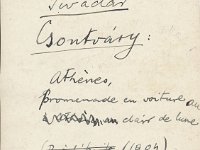 Tivadar
Csontváry:
Athènes,
promenade en voiture au
au clair de lune
(1904)